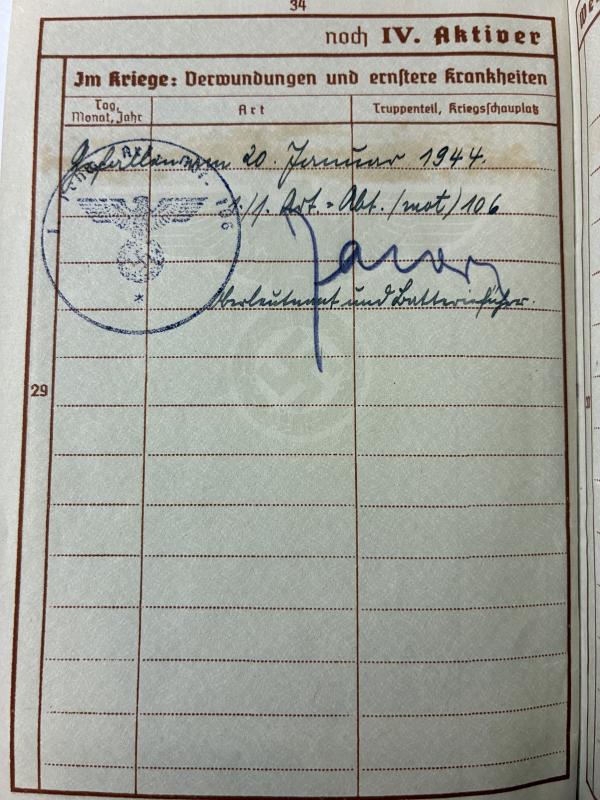 34
noch IV. Aktiver
Im Kriege: Verwundungen und ernstere Krankheiten
Tag, Monat, Jahr
Art
Truppenteil, Kriegsschauplatz
Gefallen am 20. Januar 1944.
1./I. Art.=Abt. (mot) 106
Oberleutnant und Batterieführer.
29
106